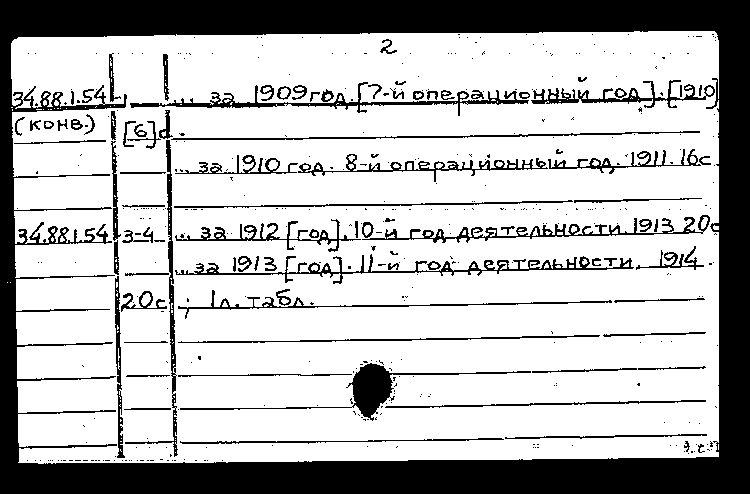 2
34.88.1.54 1 ... за 1909 год. [7-й операционный год]. [1910]
(конв.) [6] с.
... за 1910 год. 8-й операционный год. 1911. 16с
34.88.1.54 3-4 ... за 1912 [год]. 10-й год деятельности. 1913 20с
... за 1913 [год]. 11-й год деятельности. 1914.
20с ; 1 л. табл.